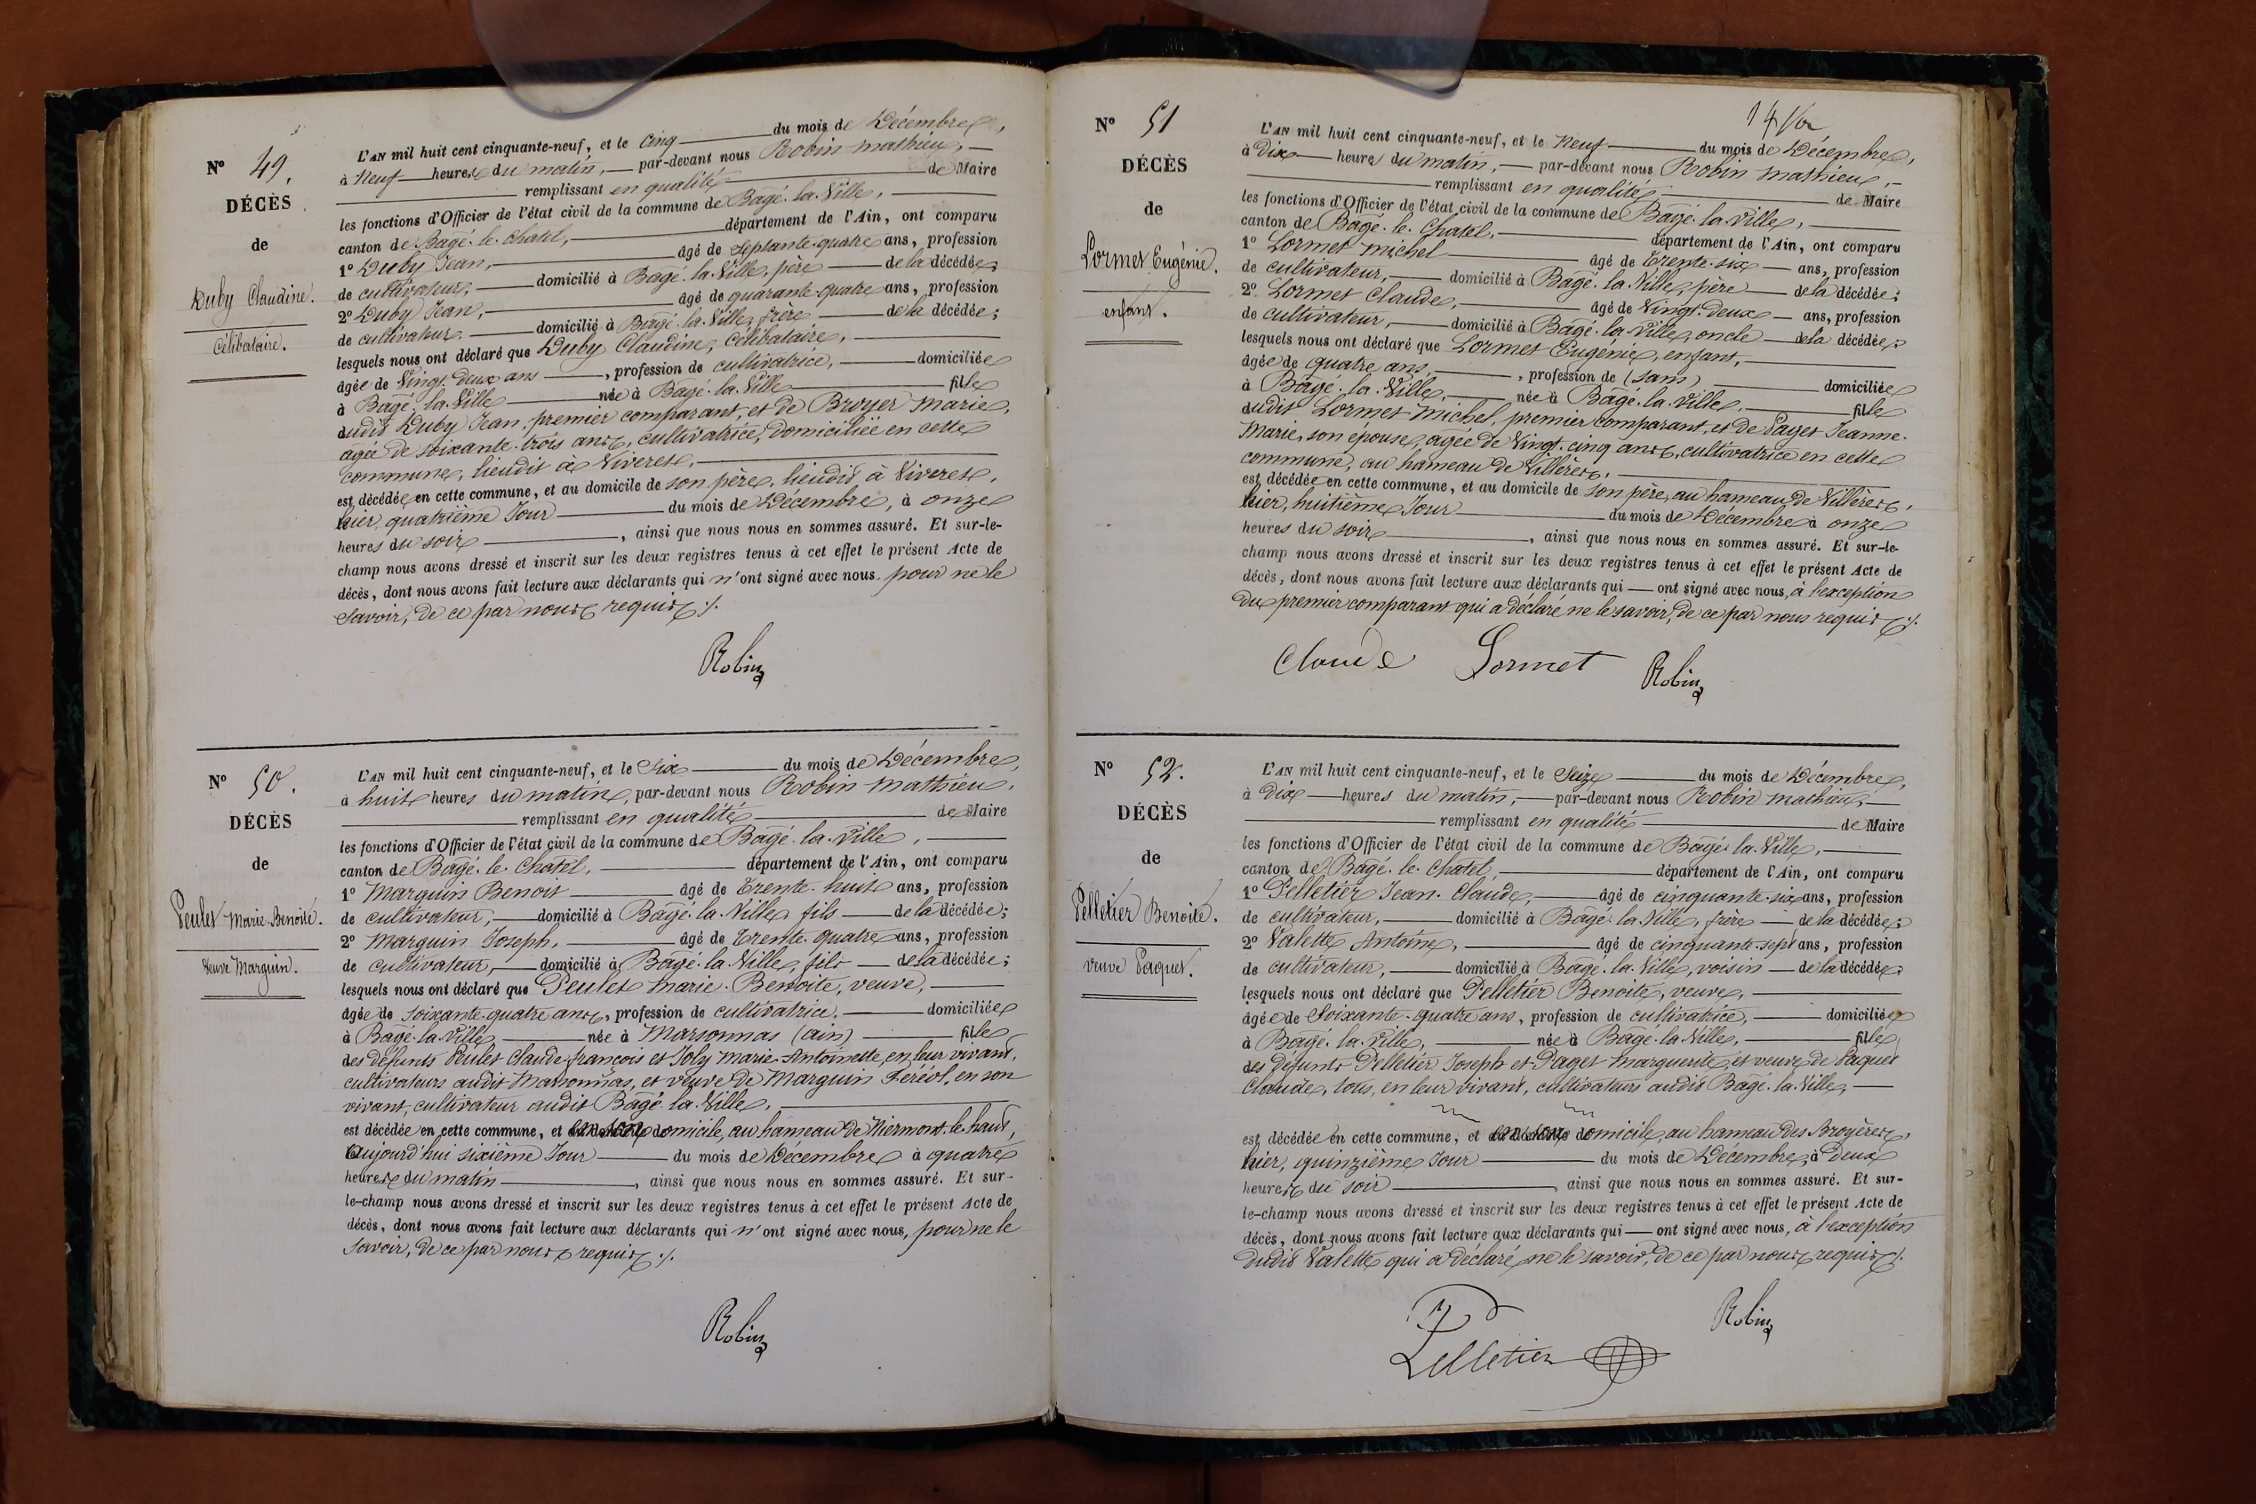 N° 49.
DÉCÈS
de
Duby Claudine.
Célibataire.
L'AN mil huit cent cinquante-neuf, et le Cinq du mois de Décembre,
à Neuf heures du matin, par-devant nous Robin Mathieu,
remplissant en qualité de Maire
les fonctions d'Officier de l'état civil de la commune de Bagé-la-Ville,
canton de Bagé-le-Chatel, département de l'Ain, ont comparu
1° Duby Jean, âgé de Septante-quatre ans, profession
de cultivateur, domicilié à Bagé-la-Ville, père de la décédée;
2° Duby Jean, âgé de quarante-quatre ans, profession
de cultivateur domicilié à Bagé-la-Ville, frère de la décédée;
lesquels nous ont déclaré que Duby Claudine, Célibataire,
âgée de Vingt-deux ans, profession de cultivatrice, domiciliée
à Bagé-la-Ville née à Bagé-la-Ville fille
dudit Duby Jean premier comparant, et de Broyer Marie,
agée de soixante-trois ans, cultivatrice, domiciliée en cette
commune, lieudit à Viveret,
est décédée en cette commune, et au domicile de son père, lieudit à Viveret,
hier, quatrième Jour du mois de Décembre, à onze
heures du soir, ainsi que nous nous en sommes assuré. Et sur-le-
champ nous avons dressé et inscrit sur les deux registres tenus à cet effet le présent Acte de
décès, dont nous avons fait lecture aux déclarants qui n'ont signé avec nous, pour ne le
savoir, de ce par nous requis ./.
Robin
N° 50.
DÉCÈS
de
Peulet Marie-Benoite.
Veuve Marguin.
L'AN mil huit cent cinquante-neuf, et le Six du mois de Décembre,
à huit heures du matin, par-devant nous Robin Mathieu,
remplissant en qualité de Maire
les fonctions d'Officier de l'état civil de la commune de Bagé-la-Ville,
canton de Bagé-le-Chatel, département de l'Ain, ont comparu
1° Marguin Benoit âgé de Trente-huit ans, profession
de cultivateur, domicilié à Bagé-la-Ville, fils de la décédée;
2° Marguin Joseph, âgé de Trente-quatre ans, profession
de cultivateur, domicilié à Bagé-la-Ville, fils de la décédée;
lesquels nous ont déclaré que Peulet Marie-Benoite, veuve,
âgée de soixante-quatre ans, profession de cultivatrice, domiciliée
à Bagé-la-Ville née à Marsonnas (ain) fille
des défunts Peulet Claude-françois et Joly Marie-Antoinette, en leur vivant,
cultivateurs audit Marsonnas, et veuve de Marguin Féréol, en son
vivant, cultivateur audit Bagé-la-Ville,
est décédée en cette commune, et en son domicile, au hameau de Niermont-le-haut,
Aujourd'hui sixième Jour du mois de Décembre à quatre
heures du matin, ainsi que nous nous en sommes assuré. Et sur-
le-champ nous avons dressé et inscrit sur les deux registres tenus à cet effet le présent Acte de
décès, dont nous avons fait lecture aux déclarants qui n'ont signé avec nous, pour ne le
savoir, de ce par nous requis ./.
Robin
N° 51
DÉCÈS
de
Lormet Eugénie.
enfant.
L'AN mil huit cent cinquante-neuf, et le Neuf du mois de Décembre,
à Dix heures du matin, par-devant nous Robin Mathieu,
remplissant en qualité de Maire
les fonctions d'Officier de l'état civil de la commune de Bagé-la-Ville,
canton de Bagé-le-Chatel, département de l'Ain, ont comparu
1° Lormet Michel âgé de Trente-six ans, profession
de cultivateur, domicilié à Bagé-la-Ville, père de la décédée;
2° Lormet Claude, âgé de Vingt-deux ans, profession
de cultivateur, domicilié à Bagé-la-Ville, oncle de la décédée;
lesquels nous ont déclaré que Lormet Eugénie, enfant,
âgée de quatre ans, profession de (sans) domiciliée
à Bagé-la-Ville, née à Bagé-la-Ville, fille
dudit Lormet Michel, premier comparant, et de Paget Jeanne-
Marie, son épouse, agée de Vingt-cinq ans, cultivatrice en cette
commune, au hameau de Villères,
est décédée en cette commune, et au domicile de son père, au hameau de Villères,
hier, huitième Jour du mois de Décembre à onze
heures du soir, ainsi que nous nous en sommes assuré. Et sur-le-
champ nous avons dressé et inscrit sur les deux registres tenus à cet effet le présent Acte de
décès, dont nous avons fait lecture aux déclarants qui ont signé avec nous, à l'exception
du premier comparant qui a déclaré ne le savoir, de ce par nous requis ./.
Claude Lormet Robin
N° 52.
DÉCÈS
de
Pelletier Benoite.
veuve Paquet.
L'AN mil huit cent cinquante-neuf, et le Seize du mois de Décembre,
à Dix heures du matin, par-devant nous Robin Mathieu,
remplissant en qualité de Maire
les fonctions d'Officier de l'état civil de la commune de Bagé-la-Ville,
canton de Bagé-le-Chatel, département de l'Ain, ont comparu
1° Pelletier Jean-Claude, âgé de cinquante-six ans, profession
de cultivateur, domicilié à Bagé-la-Ville, frère de la décédée;
2° Valette Antoine, âgé de cinquante-sept ans, profession
de cultivateur, domicilié à Bagé-la-Ville, voisin de la décédée;
lesquels nous ont déclaré que Pelletier Benoite, veuve,
âgée de Soixante-quatre ans, profession de cultivatrice, domiciliée
à Bagé-la-Ville, née à Bagé-la-Ville, fille
des défunts Pelletier Joseph et Paget Marguerite, et veuve de Paquet
Claude, tous, en leur vivant, cultivateurs audit Bagé-la-Ville,
est décédée en cette commune, et en son domicile, au hameau des Broyères,
hier, quinzième Jour du mois de Décembre, à Deux
heures du soir, ainsi que nous nous en sommes assuré. Et sur-
le-champ nous avons dressé et inscrit sur les deux registres tenus à cet effet le présent Acte de
décès, dont nous avons fait lecture aux déclarants qui ont signé avec nous, à l'exception
dudit Valette qui a déclaré ne le savoir, de ce par nous requis ./.
Pelletier Robin